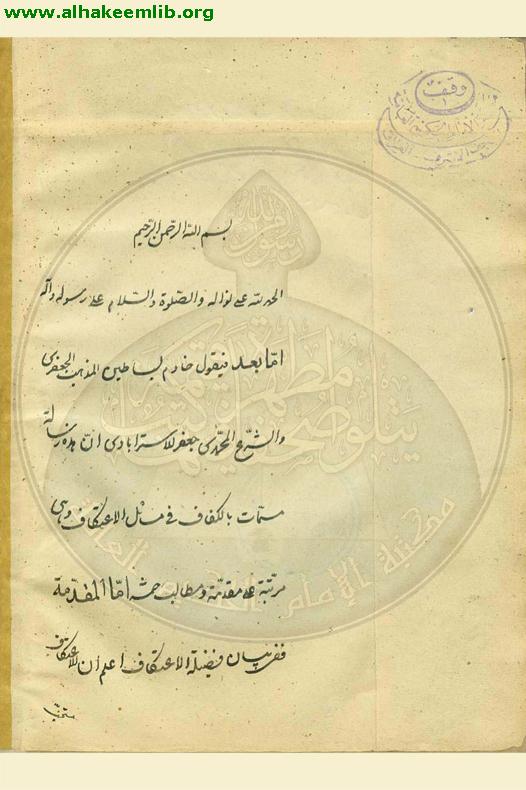 www.alhakeemlib.org
وقف
بسم الله الرحمن الرحيم
الحمد لله على نواله والصلوة والسلام على رسوله وآله
امّا بعد فيقول خادم بساطين المذهب الجعفرى
والشرع المحمدى جعفر الاسترابادى انّ هذه رسالة
مسمّات بالكفاف فى مسئل الاعتكاف وهى
مرتّبة على مقدمة ومطالب خمسة امّا المقدّمة
ففى بيان فضيلة الاعتكاف اعلم ان الاعتكاف